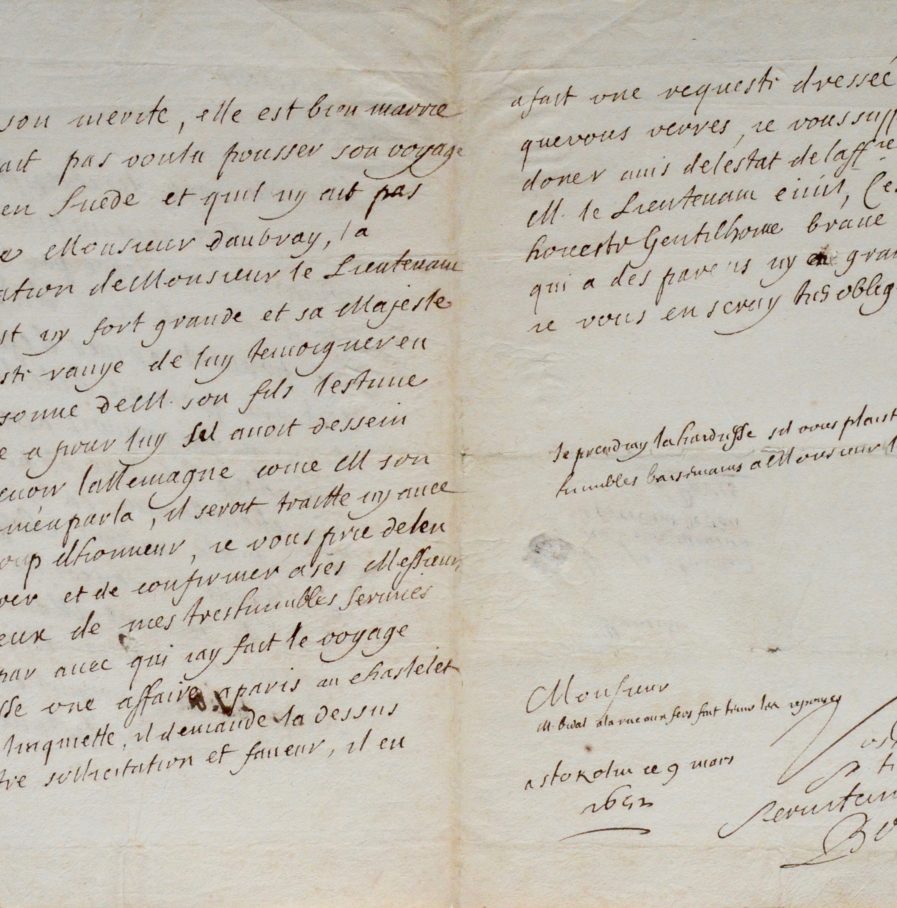 son merite, elle est bien marrie
ait pas voulu pousser son voyage
en Suede et quil ny ait pas
Monsieur daubray, la
ation de Monsieur le Lieutenant
st icy fort grande et sa Majeste
de luy temoigner en
sonne de M. son fils lestime
e a pour luy sil avoit dessein
lallemagne come M son
men parla, il seroit traitte icy avec
oup dhonneur, ie vous prie de len
rer et de confirmer a ses Messieurs
eux de mes treshumbles services
par avec qui iay fait le voyage
sse une affaire a paris au chastelet
linquiette, il demande la dessus
tre sollicitation et faveur, il en
a fait une requeste dressée
que vous verres, ie vous supp
doner avis de lestat de laffre
M. le Lieutenant civil, Ces
honeste Gentilhome brave
qui a des parens icy en gran
ie vous en seray tres oblig
Je prendray la hardiesse sil vous plaist
humbles baisemains a Monsieur l
Monsieur
a stokolm ce 9 mars
1652
os
tr
serviteur
Bo